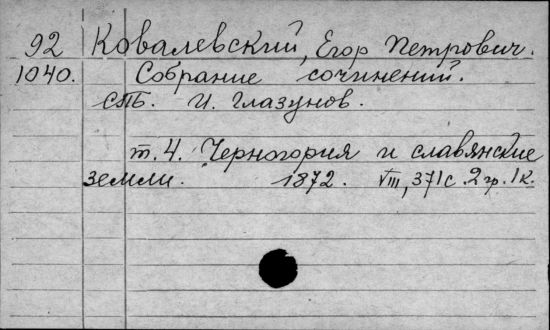 92 Ковалевский, Егор Петрович.
1040. Собрание сочинений.
СПБ. И. Глазунов.
т. 4. Черногория и славянские
земли. 1872. VIII, 371с. 2 гр. 1к.